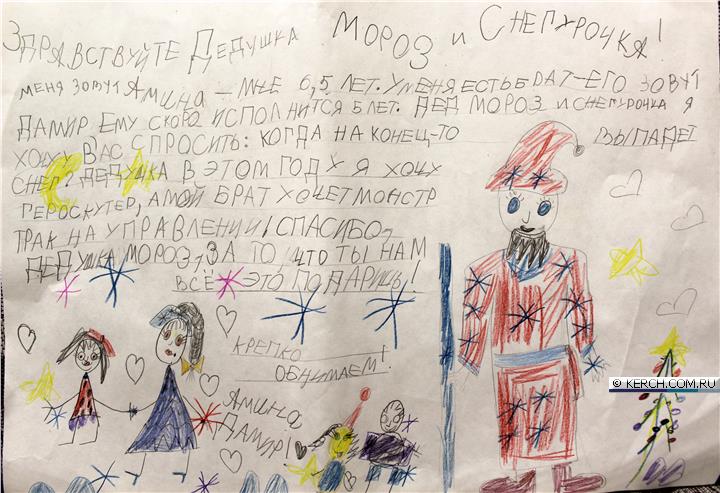 ЗДРАВСТВУЙТЕ ДЕДУШКА МОРОЗ и СНЕГУРОЧКА!
МЕНЯ ЗОВУТ АМИНА – МНЕ 6,5 ЛЕТ. У МЕНЯ ЕСТЬ БРАТ – ЕГО ЗОВУТ
ДАМИР. ЕМУ СКОРО ИСПОЛНИТСЯ 5 ЛЕТ. ДЕД МОРОЗ И СНЕГУРОЧКА Я
ХОЧУ ВАС СПРОСИТЬ: КОГДА НА КОНЕЦ-ТО ВЫПАДЕТ
СНЕГ? ДЕДУШКА В ЭТОМ ГОДУ Я ХОЧУ
ГЕРОСКУТЕР, А МОЙ БРАТ ХОЧЕТ МОНСТР
ТРАК НА УПРАВЛЕНИИ! СПАСИБО,
ДЕДУШКА МОРОЗ, ЗА ТО ЧТО ТЫ НАМ
ВСЁ ЭТО ПОДАРИШЬ!
КРЕПКО
ОБНИМАЕМ!
АМИНА
ДАМИР!
© KERCH.COM.RU